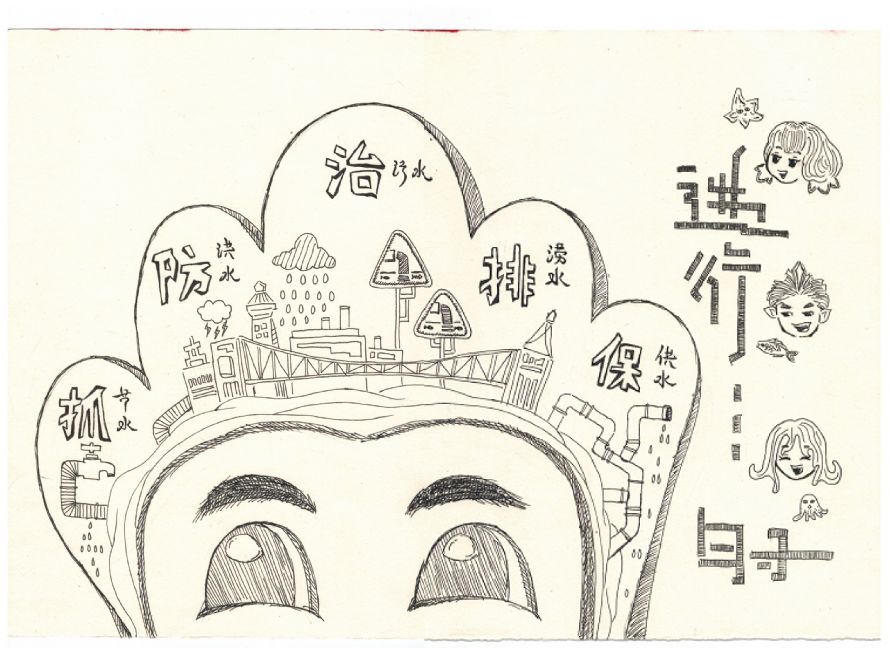 治污水
防洪水
排涝水
保供水
抓节水
进行……时